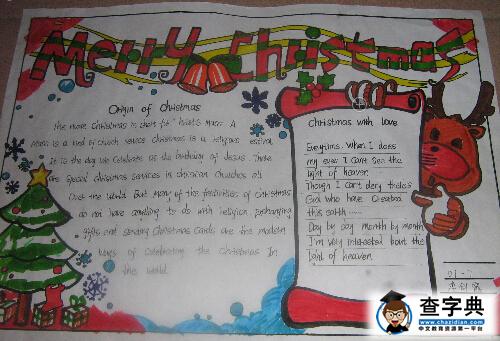 Merry Christmas
Origin of Christmas
The name Christmas is short for "Christ's Mass". A
Mass is a kind of church service Christmas is a religious festival
It is the day we celebrate as the birthday of Jesus. There
are special Christmas services in christian Churches all
Over the world But many of the festivities of Christmas
do not have anything to do with religion. exchanging
gifts and sending Christmas Cards are the modern
ways of celebrating the Christmas In
the world.
Christmas with love
Everytime. When I close
my eyes I can't see the
light of heaven.
Though I can't deny
God who have Created
this earth......
Day by day month by month
I'm very interested bout the
light of heaven.
查字典
www.chazidian.com
中文教育资源第一平台